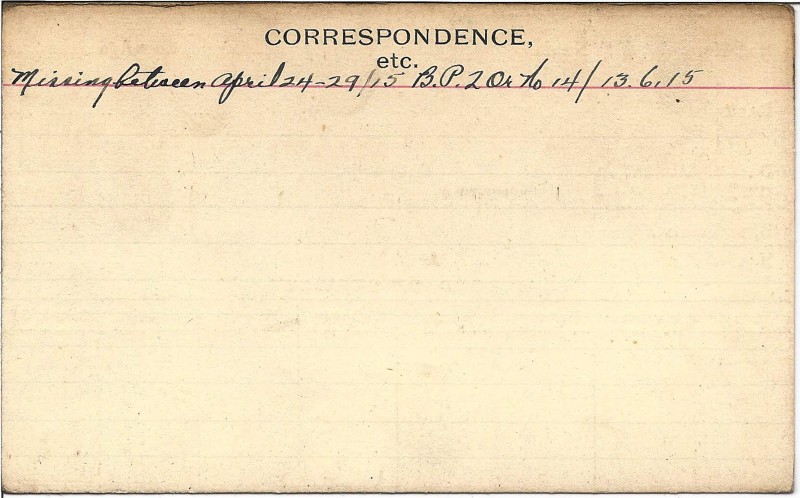 CORRESPONDENCE,
etc.
Missing between April 24-29/15 B.P. 2 Or No 14/ 13.6.15